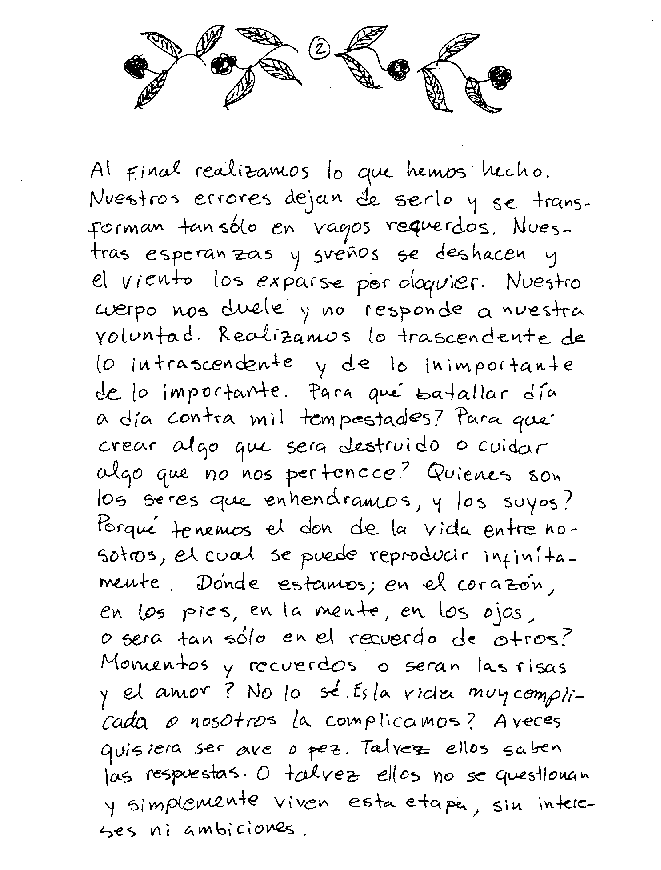 2
Al Final realizamos lo que hemos hecho.
Nuestros errores dejan de serlo y se trans-
forman tan sólo en vagos requerdos. Nues-
tras esperanzas y sueños se deshacen y
el viento los exparse por oloquier. Nuestro
cuerpo nos duele y no responde a nuestra
voluntad. Realizamos lo trascendente de
lo intrascendente y de lo inimportante
de lo importante. Para qué batallar día
a día contra mil tempestades? Para qué
crear algo que sera destruido o cuidar
algo que no nos pertenece? Quienes son
los seres que enhendramos, y los suyos?
Porqué tenemos el don de la vida entre no-
sotros, el cual se puede reproducir infinita-
mente. Dónde estamos; en el corazón,
en los pies, en la mente, en los ojos,
o sera tan sólo en el recuerdo de otros?
Momentos y recuerdos o seran las risas
y el amor? No lo sé. Es la vida muy compli-
cada o nosotros la complicamos? A veces
quisiera ser ave o pez. Talvez ellos saben
las respuestas. O talvez ellos no se questionan
y simplemente viven esta etapa, sin intere-
ses ni ambiciones.